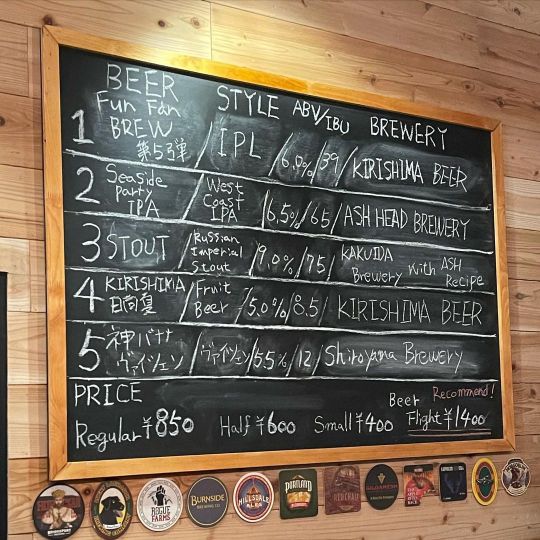 BEER STYLE ABV/IBU BREWERY
1 Fun Fan BREW 第5弾 / IPL / 6.0% / 39 / KIRISHIMA BEER
2 Seaside party IPA / West Coast IPA / 6.5% / 65 / ASH HEAD BREWERY
3 STOUT / Russian Imperial Stout / 9.0% / 75 / KAKUIDA Brewery with ASH Recipe
4 KIRISHIMA 日向夏 / Fruit Beer / 5.0% / 8.5 / KIRISHIMA BEER
5 神バナナ ヴァイツェン / ヴァイツェン / 5.5% / 12 / Shiroyama Brewery
PRICE
Regular ¥850 Half ¥600 Small ¥400 Beer Flight ¥1400 Recommend!
ROGUE FARMS
BURNSIDE BREWING CO
HILLSDALE ALES
PORTLAND